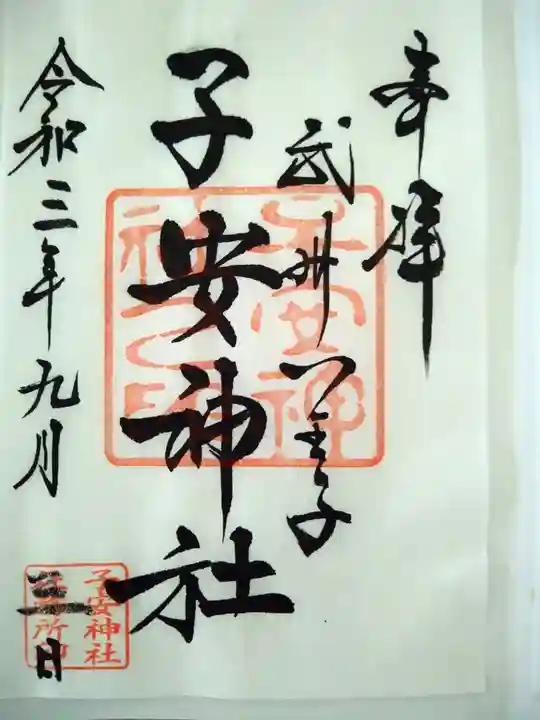 奉拝
武州八王子
子安神社
令和三年九月
三日
子安神
社之印
子安神社